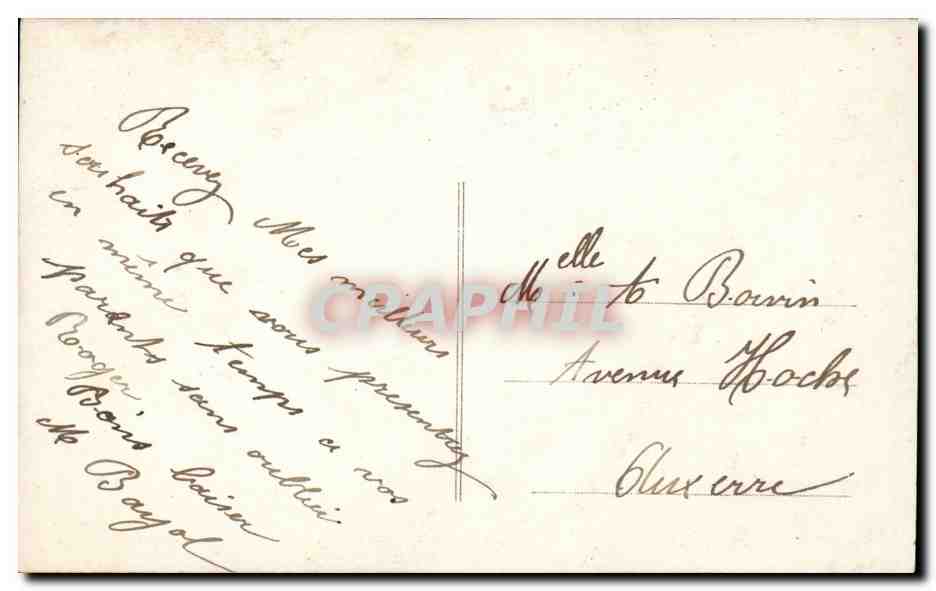 Recevez Mes meilleurs
souhaits que vous presenterez
en même temps a vos
parents sans oublier
Roger
Bons baiser
M Bayol
Melle Boivin
Avenue Hoche
Auxerre
CPAPHIL